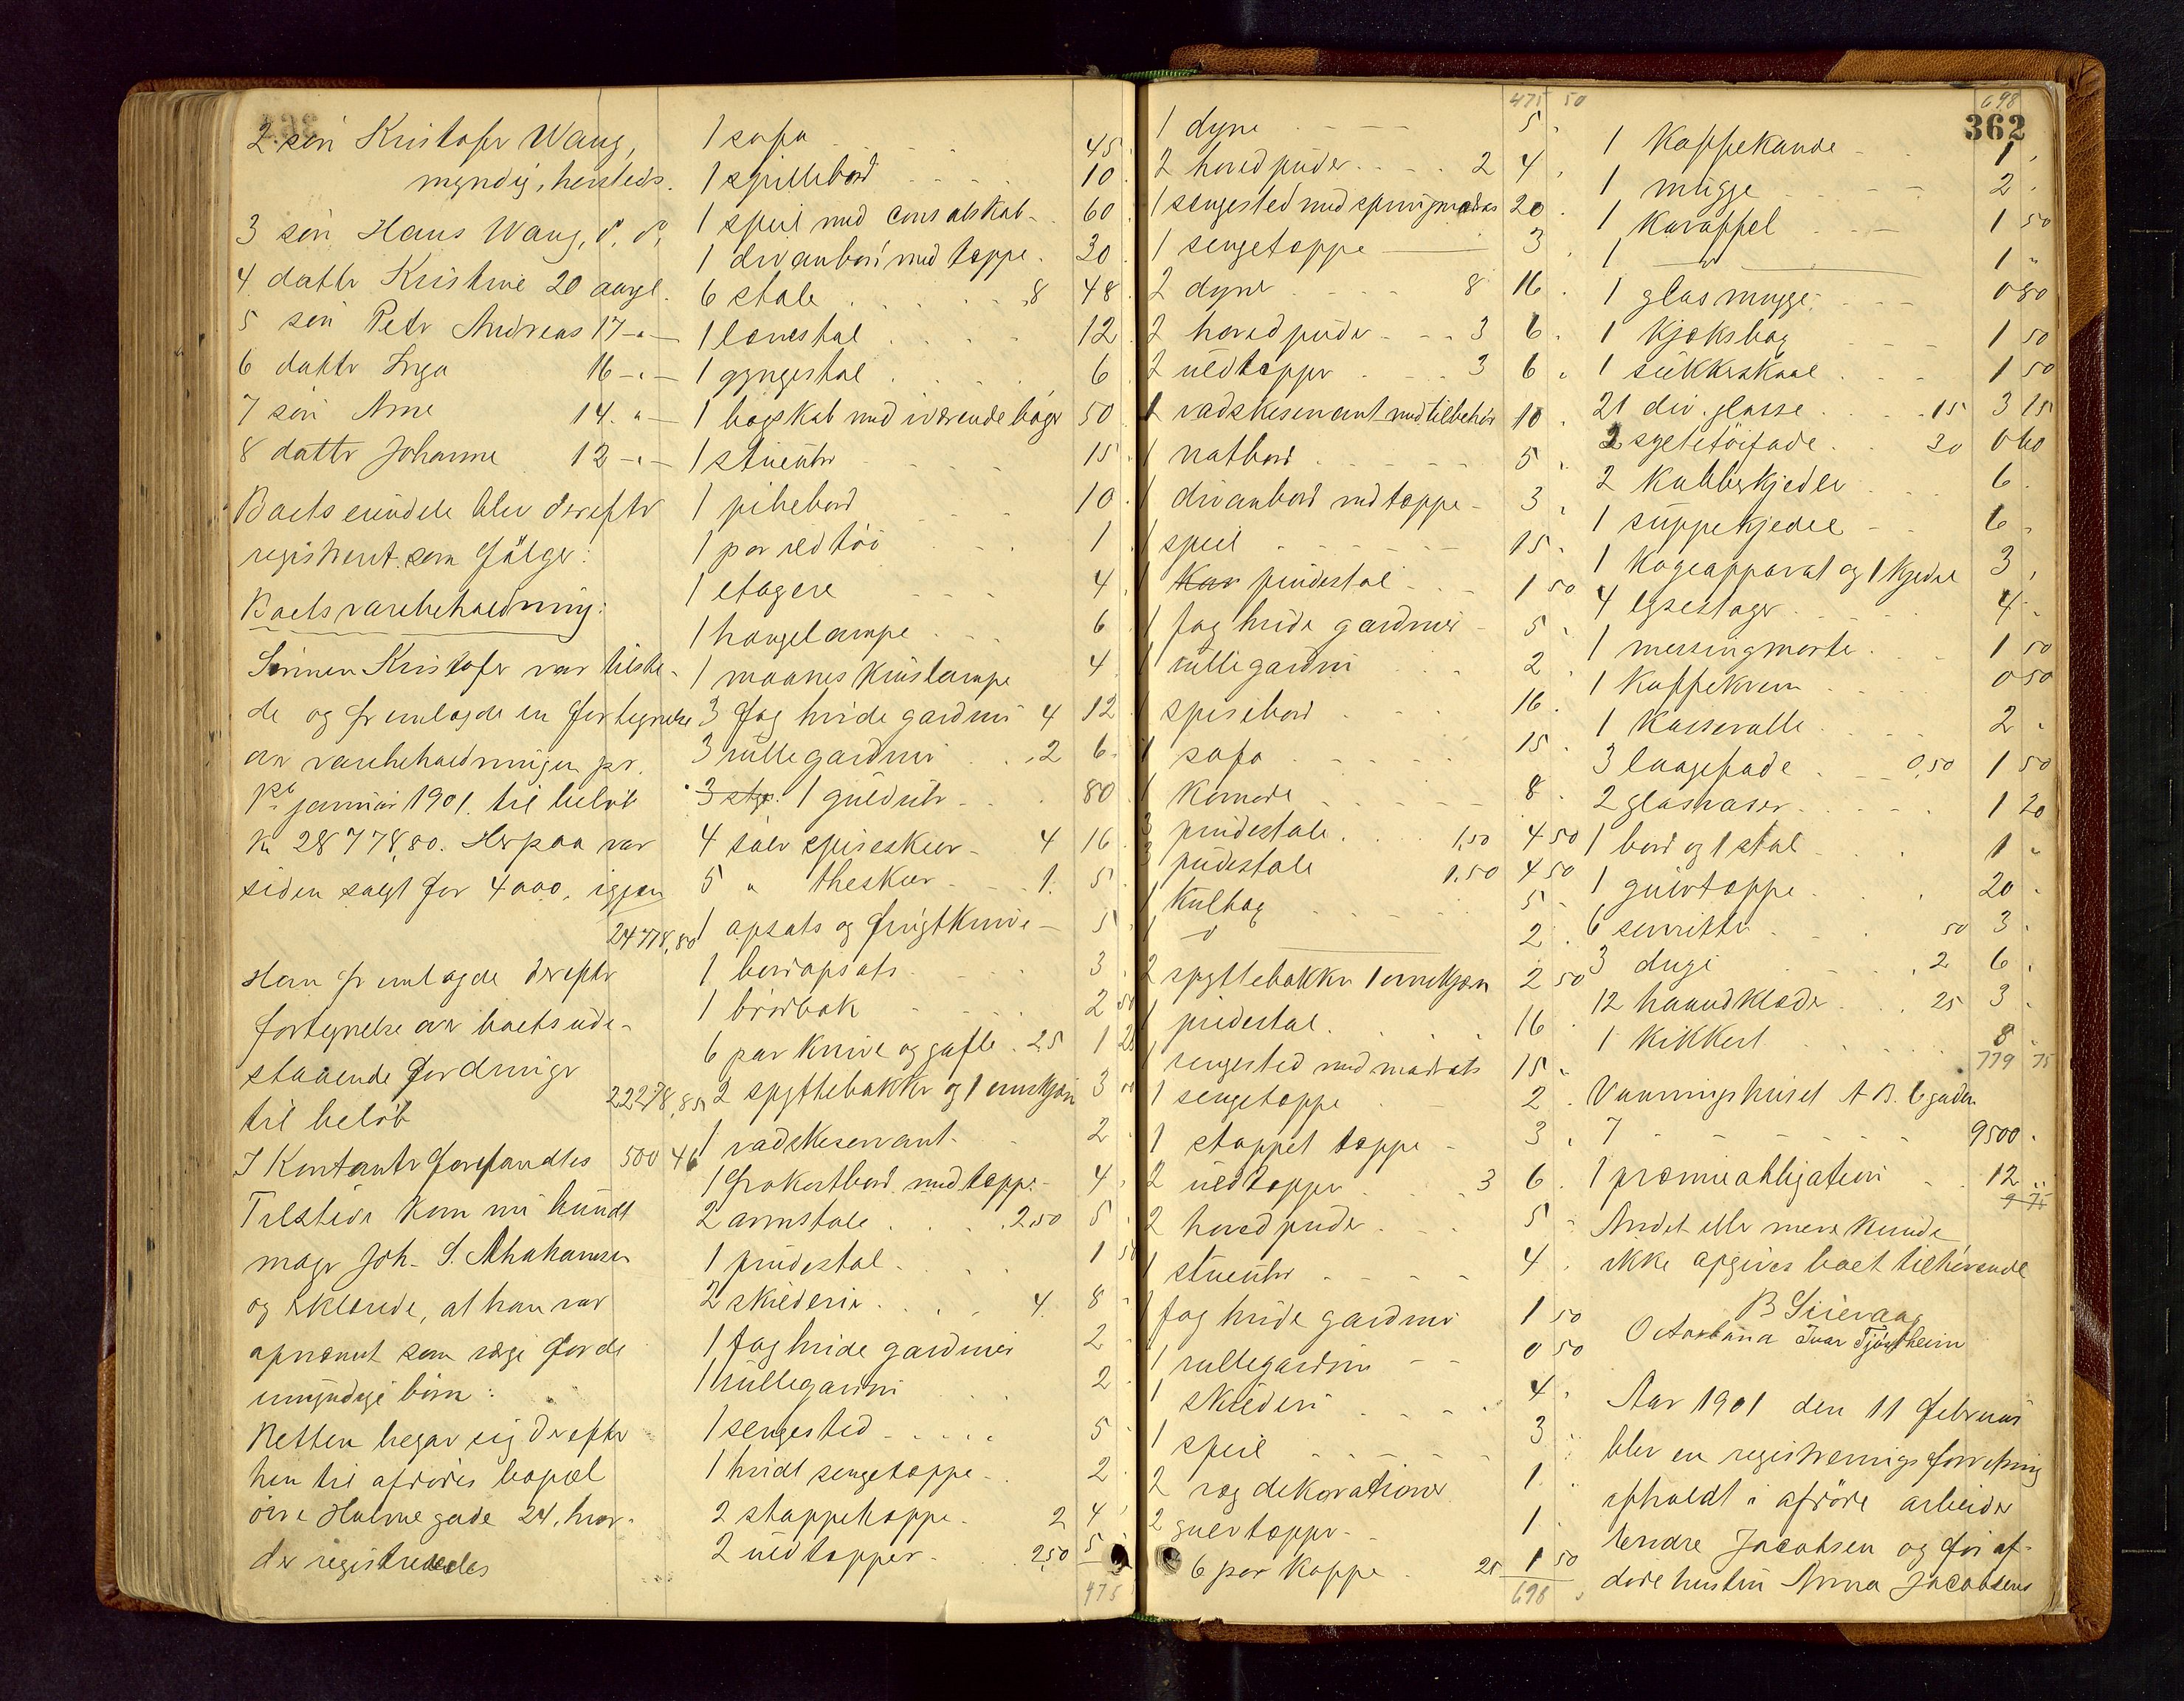 2 sön Kristofer Wang,
myndig, hersteds.
3 sön Hans Wang, d. d.
4 datter Kristine 20 aargl.
5 sön Peter Andreas 17 -"-
6 datter Inga 16 -"-
7 sön Arne 14 -"-
8 datter Johanne 12 -"-
Boets eiendele blev derefter
registreret som fölger:
Boets varebeholdning:
Sönnen Kristofer var tilste-
de og fremlagde en fortegnelse
over varebeholdningen pr.
1ste januar 1901 til belöb
Kr 28778,80. Herpaa var
siden solgt for 4000, igjen
24778,80
Han fremlagde derefter
fortegnelse over boets ude-
staaende fordringer
til belöb 22278,85
I Kontanter forefandtes 500 46
Tilstede kom nu bundt
mager Joh. S. Abrahamsen
og erklærede, at han var
opnævnt som værge for de
umyndige börn:
Retten begav sig derefter
hen til afdödes bopæl
övre Holmegade 24, hvor-
der registreredes
1 sofa 45
1 spillebord 10
1 speil med consolskab 60
1 divanbord med teppe 30
6 stole 8 48
1 lænestol 12
1 gyngestol 6
1 bogskab med iværende böger 50
1 stueuhr 15
1 pibebord 10
1 par ildtöi 1
1 etagere 4
1 hangelampe 6
1 maaneskinslampe 4
3 fag hvide gardiner 4 12
3 rullegardiner 2 6
3 stys. 1 gulduhr 80
4 sölv spiseskeer 4 16
5 " theskeer 1 5
1 opsats og frugtknive 5
1 bordopsats 3
1 brödbak 2 50
6 par knive og gafler 25 1 25
2 spyttebakker og 1 3
1 vadskeservant 2
1 frokostbord med teppe 4
2 armstole 2,50 5
1 pindestol 1 50
2 skilderier 4 8
1 fag hvide gardiner 2
1 rullegardin 2
1 sengested 5
1 hvidt sengeteppe 2
2 stoppetepper 2 4
2 uldtepper 2,50 5
475
475 50
1 dyne 5
2 hovedputer 2 4
1 sengested med springmadras 20
1 sengeteppe 3
2 dyner 8 16
2 hovedpuder 3 6
2 uldtepper 3 6
1 vadskeservant med tilbehör 10
1 natbord 5
1 divanbord med teppe 3
1 speil 15
1 Kur pindestol 1 50
1 fag hvide gardiner 5
1 rullegardin 2
1 spisebord 16
1 sofa 15
1 Komode 8
3 pindestole 1,50 4 50
3 pudestole 1,50 4 50
1 Kulbog 5
1 d 2
2 spyttebakker 1 2 50
1 pudestol 16
1 sengested med madrats 15
1 sengeteppe 2
1 stoppet teppe 3
2 uldtepper 3 6
2 hovedpuder 5
1 stueuhr 4
1 fag hvide gardiner 1 50
1 rullegardin 0 50
1 skilderi 4
1 speil 3
2 vægdekorationer 1
2 gulvtepper 1
6 par koppe 25 1 50
698
698
362
1 Kaffekande 1
1 mugge 2
1 Karaffel 1 50
1 d 1
1 glasmugge 0 80
1 Kjeksbog 1 50
1 sukkerskaal 1 50
21 div. glasse 15 3 15
2 syltetöifade 30 0 60
2 Kobberkjedler 6
1 suppekjedel 6
1 Kogeapparat og 1 Kjedel 3
4 lysestager 4
1 messingmorter 1 50
1 Kaffekvern 0 50
1 Kasserolle 2
3 laagefade 0,50 1 50
2 glasvaser 1 20
1 bord og 1 stol 1
1 gulvteppe 20
6 servietter 50 3
3 duge 2 6
12 haandklæder 25 3
1 Kikkert 8
779 75
Vaaningshuset N B. gaden
7 9500
1 præmieobligation 12
9 75
Andet eller mere kunde
ikke opgives boet tilhörende
B Sirevaag
Octavbana Ivar Tjöstheim
Aar 1901 den 11 februar
blev en registreringsforretning
afholdt i afdöde arbeider
Tendre Jacobsen og för af-
döde hustru Anna Jacobsens